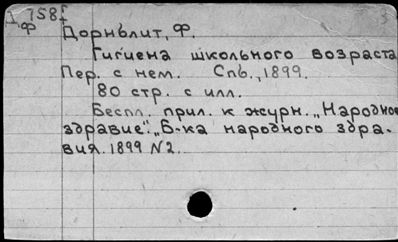 I, 758
ф
Дорнблит, Ф.
Гигиена школьного возраста
Пер. с нем. Спб., 1899.
80 стр. с илл.
Беспл. прил. к журн. „Народное
здравие". „Б-ка народного здра-
вия. 1899 N2.